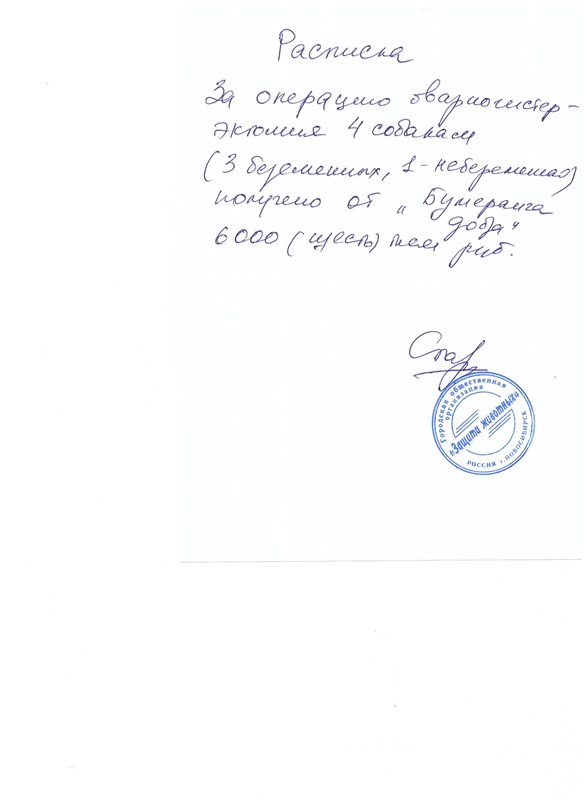 Расписка
За операцию овариогистер-
эктомия 4 собакам
(3 беременных, 1-небеременная)
получено от „Бумеранга
добра"
6000 (шесть) тысяч руб.
Городская общественная
организация
«Защити животных»
РОССИЯ г. НОВОСИБИРСК